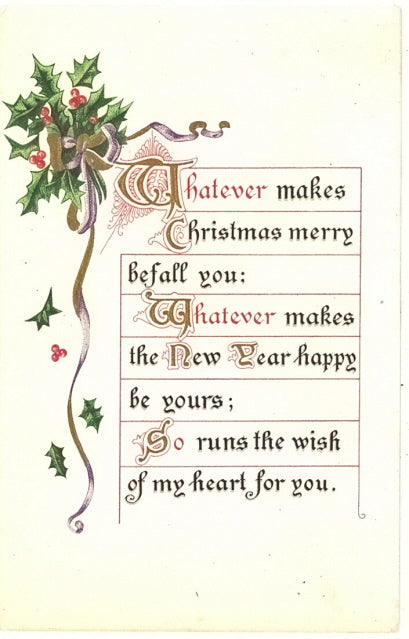 Whatever makes
Christmas merry
befall you:
Whatever makes
the New Year happy
be yours;
So runs the wish
of my heart for you.